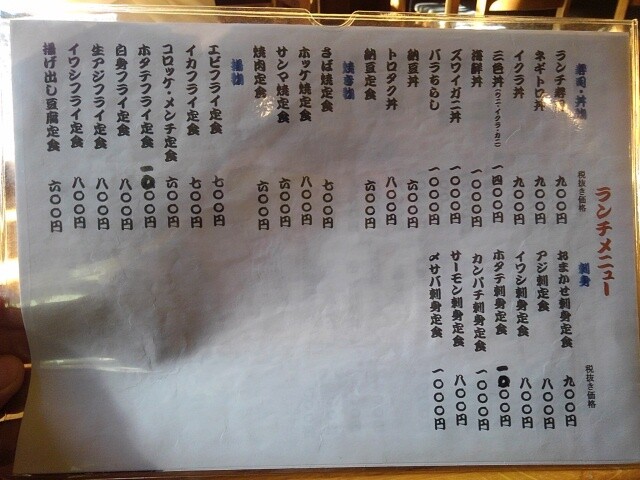 ランチメニュー
寿司・丼物
税抜き価格
ランチ寿司 九〇〇円
ネギトロ丼 九〇〇円
イクラ丼 九〇〇円
三色丼(ウニ・イクラ・カニ) 一四〇〇円
海鮮丼 一〇〇〇円
ズワイガニ丼 一〇〇〇円
バラちらし 一〇〇〇円
納豆丼 六〇〇円
トロタク丼 八〇〇円
納豆定食 六〇〇円
焼き物
さば焼定食 七〇〇円
ホッケ焼定食 八〇〇円
サンマ焼定食 六〇〇円
焼肉定食 六〇〇円
揚物
エビフライ定食 七〇〇円
イカフライ定食 七〇〇円
コロッケ・メンチ定食 六〇〇円
ホタテフライ定食 一〇〇〇円
白身フライ定食 八〇〇円
生アジフライ定食 八〇〇円
イワシフライ定食 八〇〇円
揚げ出し豆腐定食 六〇〇円
刺身
税抜き価格
おまかせ刺身定食 九〇〇円
アジ刺定食 八〇〇円
イワシ刺身定食 八〇〇円
ホタテ刺身定食 一〇〇〇円
カンパチ刺身定食 一〇〇〇円
サーモン刺身定食 八〇〇円
〆サバ刺身定食 一〇〇〇円